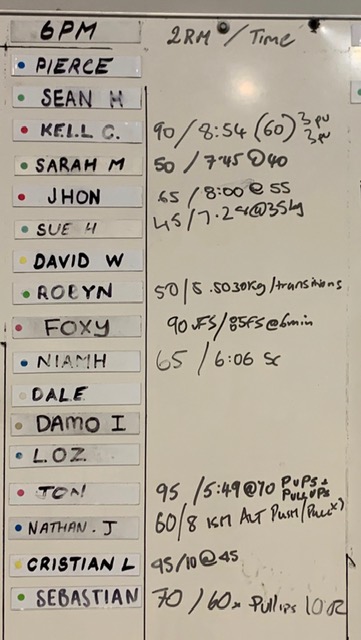 6PM 2RM / Time
PIERCE
SEAN H
KELL C. 90 / 8:54 (60) 3 pu 3 pu
SARAH M 50 / 7:45 @40
JHON 65 / 8:00 @ 55
SUE H 45/7.29@35kg
DAVID W
ROBYN 50/8.50 30kg/transitions
FOXY 90 /FS/85FS@6min
NIAMH 65 / 6:06 Sc
DALE
DAMO I
LOZ
TON 95 /5:49@70 PUPS + PULL UPS
NATHAN. J 60/8 KM ALT Push/
CRISTIAN L 95/10@45
SEBASTIAN 70 /60 Pullips